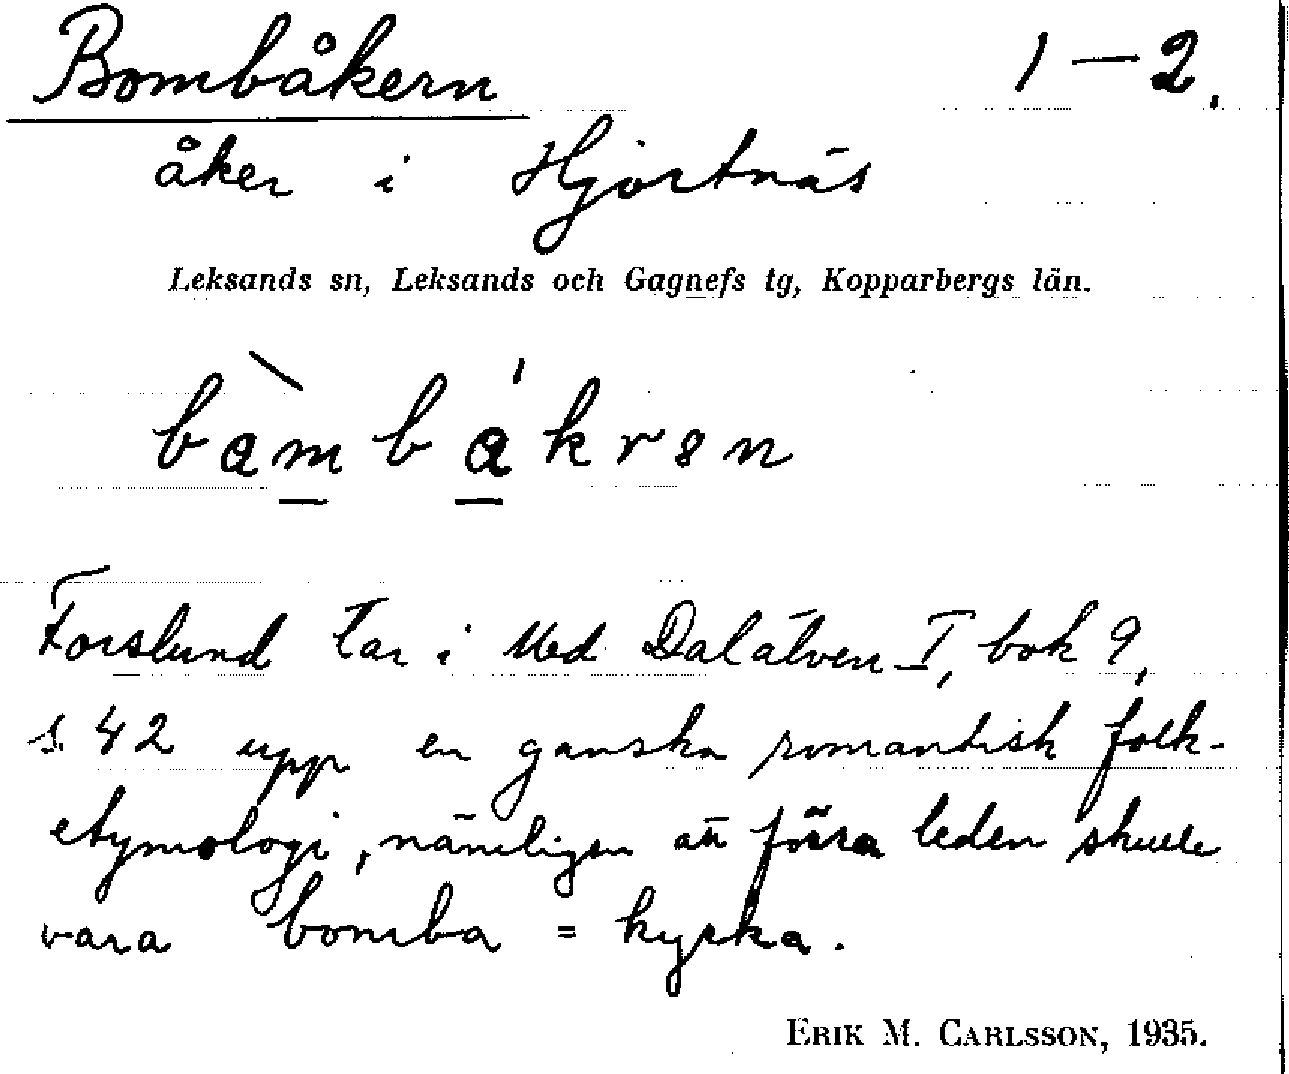 Bombåkern 1–2.
åker i Hjortnäs
Leksands sn, Leksands och Gagnefs tg, Kopparbergs län.
bàmbákrən
Forslund tar i Med Dalälven I, bok 9,
s. 42 upp en ganska romantisk folk-
etymologi, nämligen att förra leden skulle
vara bomba = kyrka.
ERIK M. CARLSSON, 1935.